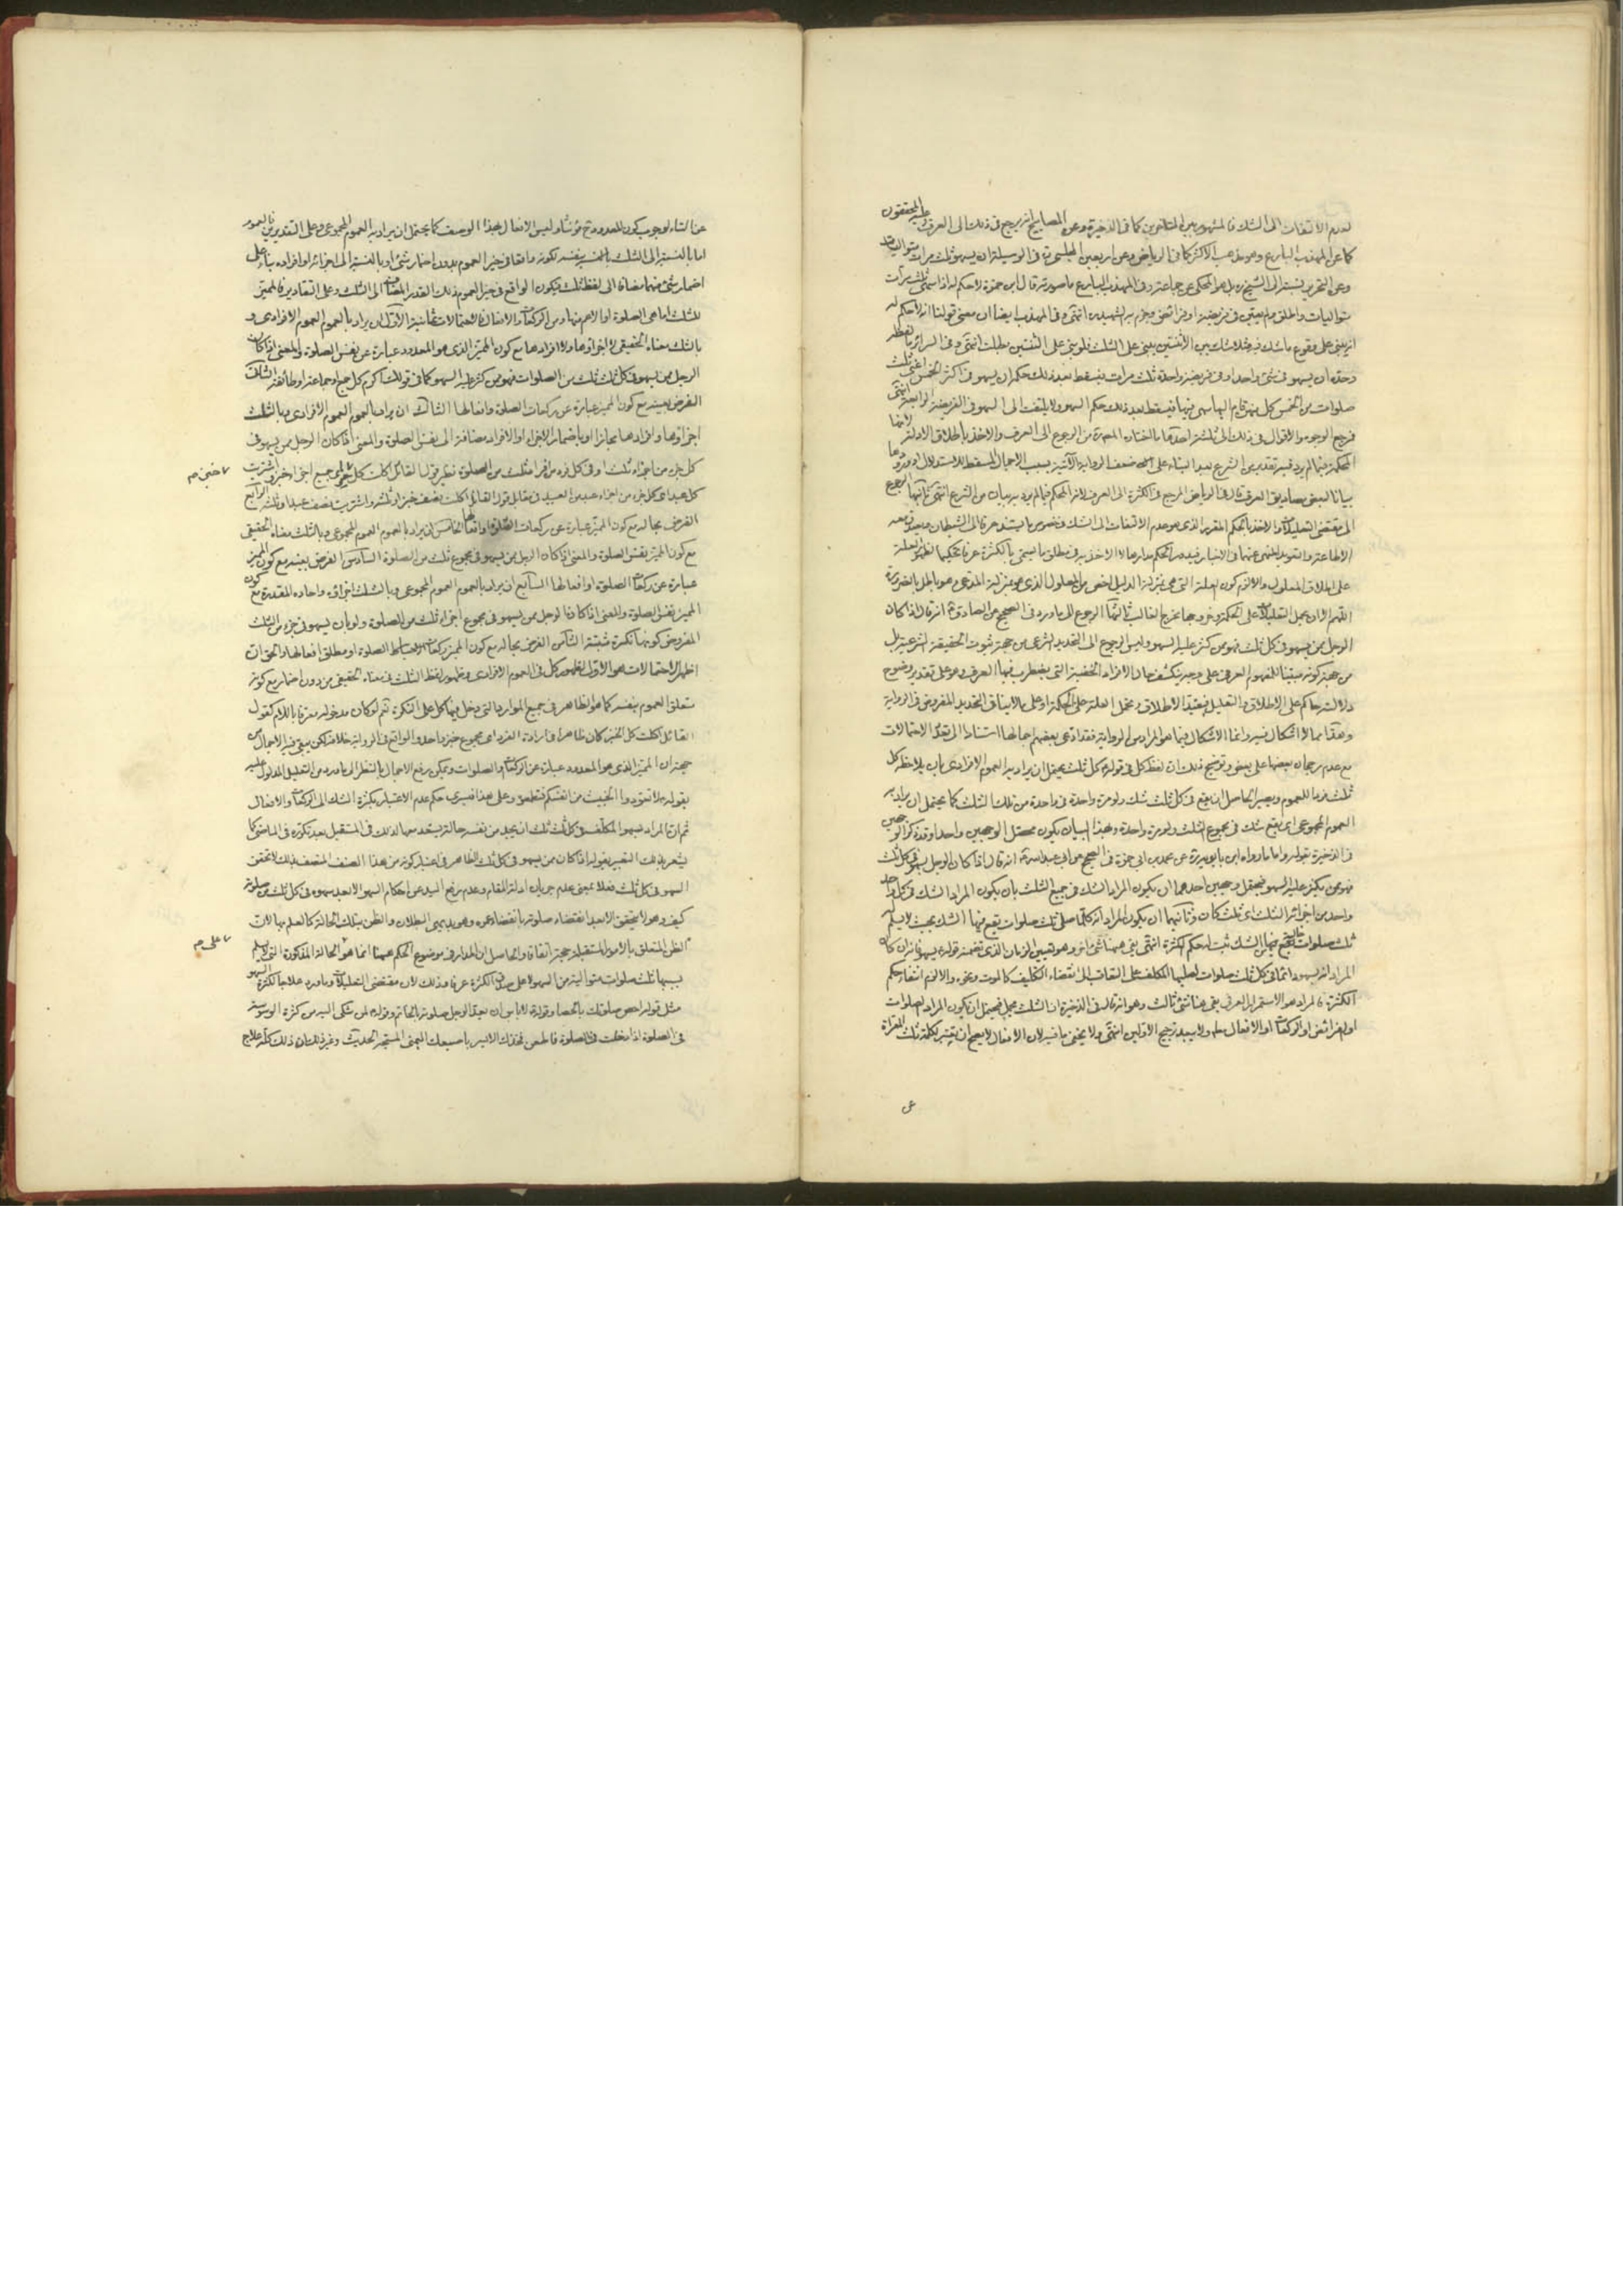 لعدم الالتفات الى الشك فالمشهور بين المتاخرين كما فى الذخيرة وعن المصابيح انه يرجع فى ذلك الى العرف وعليه المحققون
كما عن المهذب البارع وهو مذهب الاكثر كما فى الرياض وعن اربعين المجلسى وفى الوسيلة ان يسهو ثلث مرات متواليات
وعن التحرير نسبته الى الشيخ ره بل هو المحكى عن جماعة وفى المهذب البارع ما صورته قال ابن حمزة لا حكم له اذا سهى ثلث مرات
متواليات واطلق ولم يعين فى فريضة او فرائض وجزم به الشهيد انتهى وفى المهذب ايضا ان معنى قولنا لا حكم له
انه يبنى على وقوع ما شك فيه فلا شك بين الاثنتين يبنى على الثلث فلو بنى على الثنتين بطلت انتهى وفى السرائر ما لفظه
وحده ان يسهو فى شئ واحد او فى فريضة واحدة ثلث مرات فيسقط بعد ذلك حكمه او يسهو فى اكثر الخمس اعنى ثلث
صلوات من الخمس كل منهن قام اليها سهى فيها فيسقط بعد ذلك حكم السهو ولا يلتفت الى السهو فى الفريضة الرابعة انتهى
فمرجع الوجوه والاقوال فى ذلك الى ثلثة احدها ما اختاره المعظم من الرجوع الى العرف والاخذ باطلاق الادلة لانها
المحكمة فيما لم يرد فيه تقدير من الشرع بعد البناء على ضعف الرواية الآتية بسبب الاجمال المسقط للاستدلال او ورودها
بيانا لبعض مصاديق العرف قال فى الرياض المرجع فى الكثرة الى العرف لانه المحكم فيما لم يرد به بيان من الشرع انتهى ثانيها الرجوع
الى مقتضى التعليلات والاخذ بالحكم المقرر الذى هو عدم الالتفات الى الشك فى خصوص ما يستند عرفا الى الشيطان ويصدق معه
الاطاعة والتعويد المنهى عنهما فى الاخبار فيدور الحكم مدارها لا الاخذ به فى مطلق ما يسمى بالكثرة عرفا تحكيما لظهور العلة
على اطلاق المعلول والا لزم كون العلة التى هى بمنزلة الدليل اخص من المعلول الذى هو بمنزلة المدعى وهو باطل بالضرورة
اللهم الا ان يحمل التعليلات على الحكمة وخروجها مخرج الغالب ثالثها الرجوع الى ما ورد فى الصحيح عن الصادق ع انه قال اذا كان
الرجل ممن يسهو فى كل ثلث فهو ممن كثر عليه السهو وليس الرجوع الى التحديد الشرعى من جهة ثبوت الحقيقة الشرعية بل
من جهة كونه مبينا للمفهوم العرفى على وجه ينكشف حال الافراد الخفية التى يضطرب فيها العرف وهو على تقدير وضوح
دلالته حاكم على الاطلاق والتعليل فيقيد الاطلاق ويحمل العلة على الحكمة او على ما لا ينافى التحديد المفروض فى الرواية
وهذا مما لا اشكال فيه وانما الاشكال فيما هو المراد من الرواية فقد ادعى بعضهم اجمالها استنادا الى تعدد الاحتمالات
مع عدم رجحان بعضها على بعض وتوضيح ذلك ان لفظ كل فى قوله ع كل ثلث يحتمل ان يراد به العموم الافرادى بان يلاحظ كل
ثلث فردا للعموم ويصير الحاصل ان يقع فى كل ثلث شك ولو مرة واحدة فى واحدة من تلك الثلث كما يحتمل ان يراد به
العموم المجموعى اى يقع شك فى مجموع الثلث ولو مرة واحدة وبهذا البيان يكون محصل الوجهين واحدا وقد ذكر الوجهين
فى الذخيرة بقوله واما ما رواه ابن بابويه ره عن محمد بن ابى حمزة فى الصحيح عن ابى عبد الله ع انه قال اذا كان الرجل يسهو فى كل ثلث
فهو ممن يكثر عليه السهو فيحتمل وجهين احدهما ان يكون المراد الشك فى جميع الثلث بان يكون المراد الشك فى كل واحد
واحد من اجزاء الثلث اى ثلث كان وثانيهما ان يكون المراد انه كلما صلى ثلث صلوات يقع فيها الشك بحيث لا يسلم
ثلث صلوات خالية عن الشك ثبت له حكم الكثرة انتهى بقى ههنا شئ اخر وهو تعيين الزمان الذى تضمنه قوله ع يسهو فانه ان كان
المراد انه يسهو دائما فى كل ثلث صلوات لصليها المكلف على التعاقب الى انقضاء التكليف كالموت ونحوه والا لزم انتفاء حكم
الكثرة فالمراد هو الاستمرار العرفى بقى هنا شئ ثالث وهو انه قال فى الذخيرة ان الثلث مجمل فيحتمل ان يكون المراد الصلوات
او الفرائض او الركعات او الافعال مطلقا ولا يبعد ترجيح الاولين انتهى ولا يخفى ما فيه لان الافعال لا يصح ان يميز بكلمة ثلث المعراة
عن
عن التاء لوجوب كون المعدود ح مؤنثا وليس الافعال بهذا الوصف كما يحتمل ان يراد به العموم المجموعى وعلى التقديرين فالعموم
اما بالنسبة الى الثلث بالنسبة بنفسه لكونه واقعا فى حيز العموم بدون اضمار شئ او بالنسبة الى اجزائه او افراده بناء على
اضمار شئ منهما مضافا الى لفظ ثلث فيكون الواقع فى حيز العموم ذلك القدر المضاف الى الثلث وعلى التقادير فالمميز
للثلث اما هى الصلوة او الاعم منها ومن الركعات والافعال فالاحتمالات ثمانية الاول ان يراد بالعموم العموم الافرادى و
بالثلث معناه الحقيقى لا اجزاؤها ولا افرادها مع كون المميز الذى هو المعدود عبارة عن نفس الصلوة والمعنى اذا كان
الرجل ممن يسهو فى كل ثلث ثلث من الصلوات فهو ممن كثر عليه السهو كما فى قولك اكرم كل جمع او جماعة او طائفة الثانى
الفرض بعينه مع كون المميز عبارة عن ركعات الصلوة وافعالها الثالث ان يراد بالعموم العموم الافرادى وبالثلث
اجزاؤها وافرادها مجازا او باضمار الاجزاء او الافراد مضافة الى نفس الصلوة والمعنى اذا كان الرجل ممن يسهو فى
كل جزء من اجزاء ثلث او فى كل فرد من افراد ثلث من الصلوة نظير قول القائل اكلت كل خبز اى جميع اجزاء خبز واشتريت
كل عبد اى كل جزء من اجزاء عبد من العبيد فى مقابل قول القائل اكلت نصف خبز او ثلثه واشتريت نصف عبد او ثلثه الرابع
الفرض بحاله مع كون المميز عبارة عن ركعات الصلوة وافعالها الخامس ان يراد بالعموم العموم المجموعى وبالثلث معناه الحقيقى
مع كون المميز نفس الصلوة والمعنى اذا كان الرجل ممن يسهو فى مجموع ثلث من الصلوة السادس الفرض بعينه مع كون المميز
عبارة عن ركعات الصلوة او افعالها السابع ان يراد بالعموم العموم المجموعى وبالثلث اجزاؤه واحاده المقدرة مع كون
المميز نفس الصلوة والمعنى اذا كان الرجل ممن يسهو فى مجموع اجزاء ثلث من الصلوة ولو بان يسهو فى جزء من الثلث
المفروض كونها نكرة مثبتة الثامن الفرض بحاله مع كون المميز ركعات الصلوة او مطلق افعالها والحق ان
اظهر الاحتمالات هو الاول لظهور كل فى العموم الافرادى وظهور لفظ الثلث فى معناه الحقيقى من دون اضمار مع كونه
متعلق العموم بنفسه كما هو الظاهر فى جميع الموارد التى دخل فيها كل على النكرة نعم لو كان مدخوله معرفا باللام كقول
القائل اكلت كل الخبز كان ظاهرا فى ارادة الفرد اى مجموع خبز واحد والواقع فى الرواية خلافه لكن يبقى فيه الاجمال من
جهة ان المميز الذى هو المعدود عبارة عن الركعات والصلوات ويمكن رفع الاجمال بالنظر الى ما ورد من التعليل المدلول عليه
بقوله ع لا تعودوا الخبيث من انفسكم فتطمعوه وعلى هذا فيسرى حكم عدم الاعتبار بكثرة الشك الى الركعات والافعال
ثم ان المراد بسهو المكلف فى كل ثلث ثلث ان يجد من نفسه حالة يستعد معها لذلك فى المستقبل بعد تكرره فى الماضى كما
يشعر بذلك التعبير بقوله اذا كان ممن يسهو فى كل ثلث الظاهر فى اعتبار كونه من هذا الصنف المتصف بذلك لا تحقق
السهو فى كل ثلث فعلا بمعنى عدم جريان ادلة المقام وعدم رفع اليد عن احكام السهو الا بعد سهوه فى كل ثلث من صلوته
كيف وهو لا يتحقق الا بعد انقضاء صلوته بانقضاء عمره وهو بديهى البطلان والظن بتلك الحالة كالعلم بها لان
الظن المتعلق بالامور المستقبلة حجة اتفاقا والحاصل ان المدار فى موضوع الحكم هنا انما هو الحالة المذكورة التى لا يسلم
بسببها ثلث صلوات متوالية من السهو لا على صدق الكثرة عرفا وذلك لان مقتضى التعليلات وما ورد علاجا لكثرة السهو
مثل قوله احص صلوتك بالحصا وقوله ع لا باس ان يعد الرجل صلوته بخاتمه وقوله ع لمن شكى اليه من كثرة الوسوسة
فى الصلوة اذا دخلت فى الصلوة فاطعن فخذك الايسر باصبعك اليمنى المسبحة الحديث وغير ذلك ان ذلك كله علاج
خبز م
على م